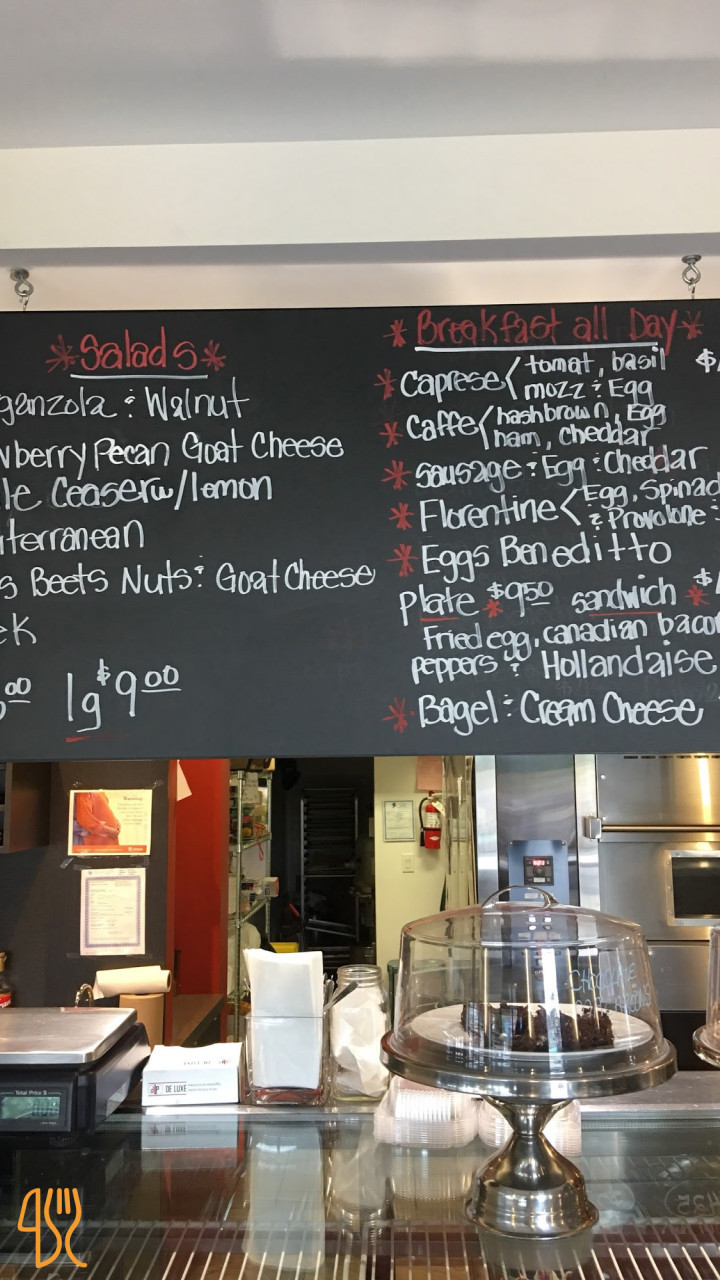 *Salads*
ganzola & Walnut
wberry Pecan Goat Cheese
le Ceaser w/lemon
iterranean
s Beets Nuts & Goat Cheese
ek
00 1g $9 00
*Breakfast all Day*
* Caprese < tomat, basil $
mozz & Egg
* Caffe < hashbrown, Egg
ham, cheddar
* sausage & Egg & Cheddar
* Florentine < Egg, Spinac
& Provolone &
* Eggs Beneditto
Plate * $9 50 sandwich * $
Fried egg, canadian bacon
peppers & Hollandaise
* Bagel & Cream Cheese
Warning
DE LUXE
Total Price $
CHOCOLATE